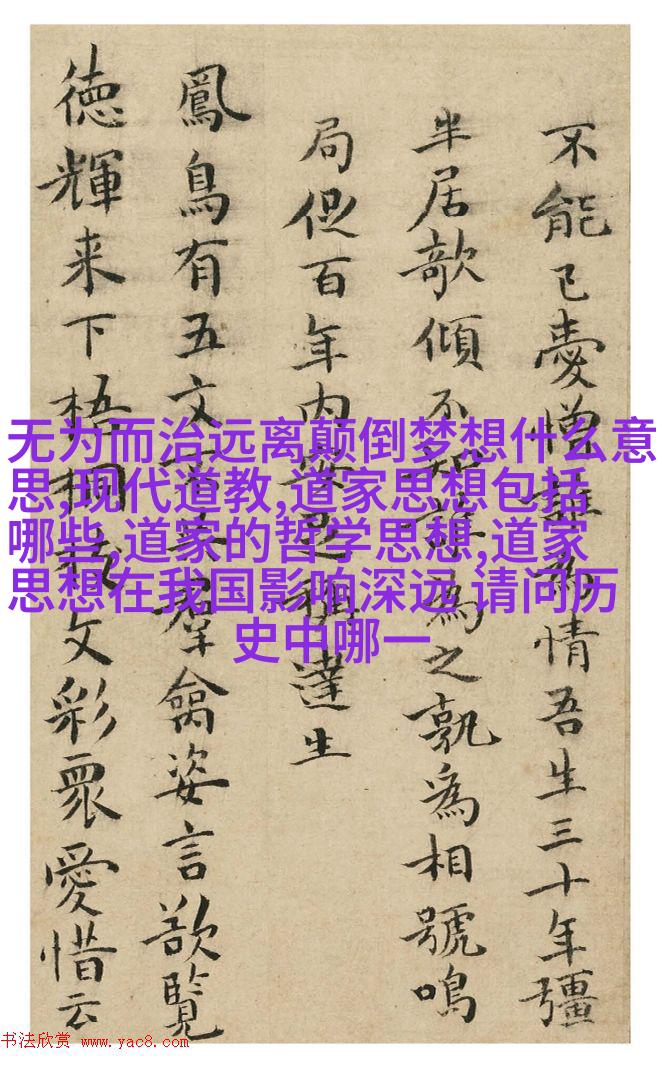 不能已愛憎情吾生三十年彊
半居欹傾不為之孰為相號鳴
局促百年内無足稱達生
鳳鳥有五文羣禽姿言欲覽
徳輝来下梧桐文彩眾愛惜云
无为而治远离颠倒梦想什么意
思,现代道教,道家思想包括
哪些,道家的哲学思想,道家
思想在我国影响深远,请问历
史中哪一
书法欣赏 www.yac8.com